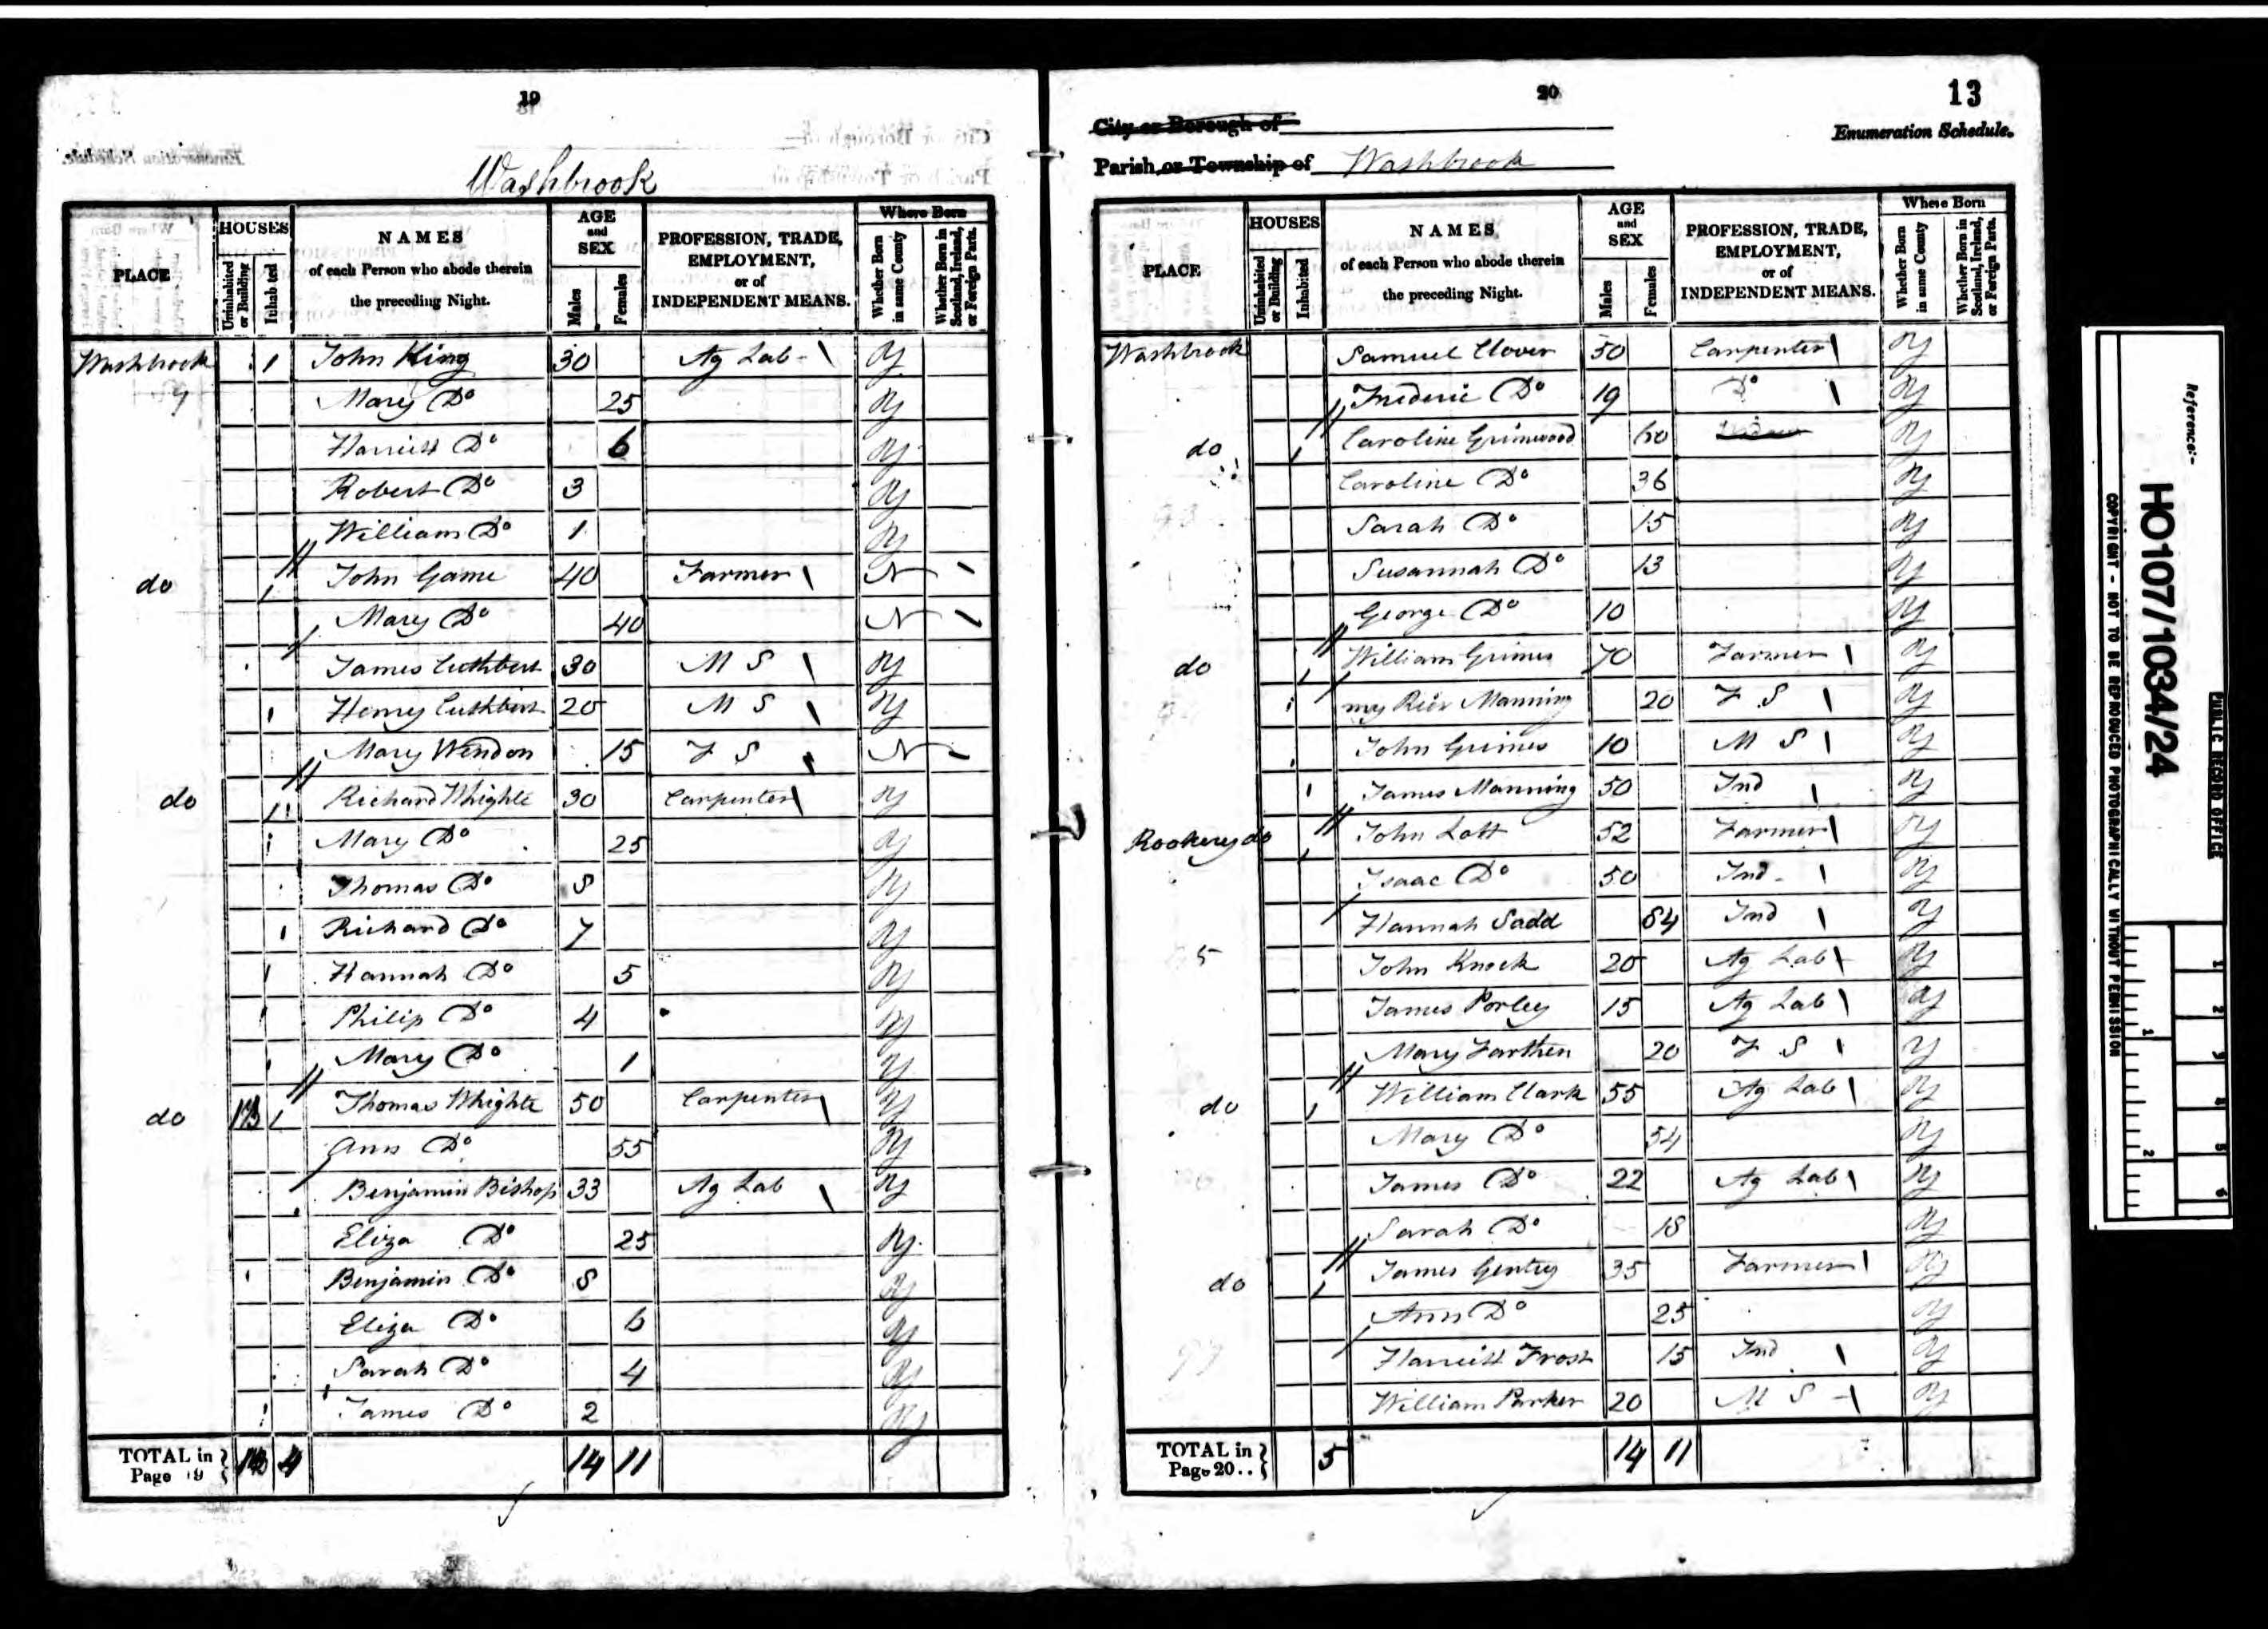 19
Washbrook
PLACE
HOUSES
Uninhabited or Building
Inhabited
NAMES
of each Person who abode therein
the preceding Night.
AGE
and
SEX
Males
Females
PROFESSION, TRADE,
EMPLOYMENT,
or of
INDEPENDENT MEANS.
Where Born
Whether Born in same County
Whether Born in Scotland, Ireland, or Foreign Parts.
Washbrook 1 John King 30 Ag Lab y
Mary Do 25 y
Harriett Do 6 y
Robert Do 3 y
William Do 1 y
do 1 John Game 40 Farmer N
Mary Do 40 N
James Cuthbert 30 M S y
Henry Cuthbert 20 M S y
Mary Wendon 15 F S N
do 1 Richard Whighte 30 Carpenter y
Mary Do 25 y
Thomas Do 8 y
Richard Do 7 y
Hannah Do 5 y
Philip Do 4 y
Mary Do 1 y
do 1 Thomas Whighte 50 Carpenter y
Ann Do 55 y
Benjamin Bishop 33 Ag Lab y
Eliza Do 25 y
Benjamin Do 8 y
Eliza Do 6 y
Sarah Do 4 y
James Do 2 y
TOTAL in Page 19 4 14 11
20
13
City or Borough of
Enumeration Schedule.
Parish or Township of Washbrook
PLACE
HOUSES
Uninhabited or Building
Inhabited
NAMES
of each Person who abode therein
the preceding Night.
AGE
and
SEX
Males
Females
PROFESSION, TRADE,
EMPLOYMENT,
or of
INDEPENDENT MEANS.
Where Born
Whether Born in same County
Whether Born in Scotland, Ireland, or Foreign Parts.
Washbrook Samuel Clover 50 Carpenter y
Frederic Do 19 Do y
do 1 Caroline Grimwood 60 y
Caroline Do 36 y
Sarah Do 15 y
Susannah Do 13 y
George Do 10 y
do 1 William Grimes 70 Farmer y
Manning 20 F S y
John Grimes 10 M S y
James Manning 50 Ind y
Rookery do 1 John Lott 52 Farmer y
Isaac Do 50 Ind y
Hannah Sadd Ind y
John Knock 20 Ag Lab y
James Porley 15 Ag Lab y
Mary Farthen 20 F S y
do 1 William Clark 55 Ag Lab y
Mary Do 54 y
James Do 22 Ag Lab y
Sarah Do 18 y
do 1 James Gentry 35 Farmer y
Ann Do 25 y
Harriett Frost 15 Ind y
William Parker 20 M S y
TOTAL in Page 20.. 5 14 11
Reference:-
HO107/1034/24
PUBLIC RECORD OFFICE
COPYRIGHT - NOT TO BE REPRODUCED PHOTOGRAPHICALLY WITHOUT PERMISSION
1
2
1
2
3
4
5
6